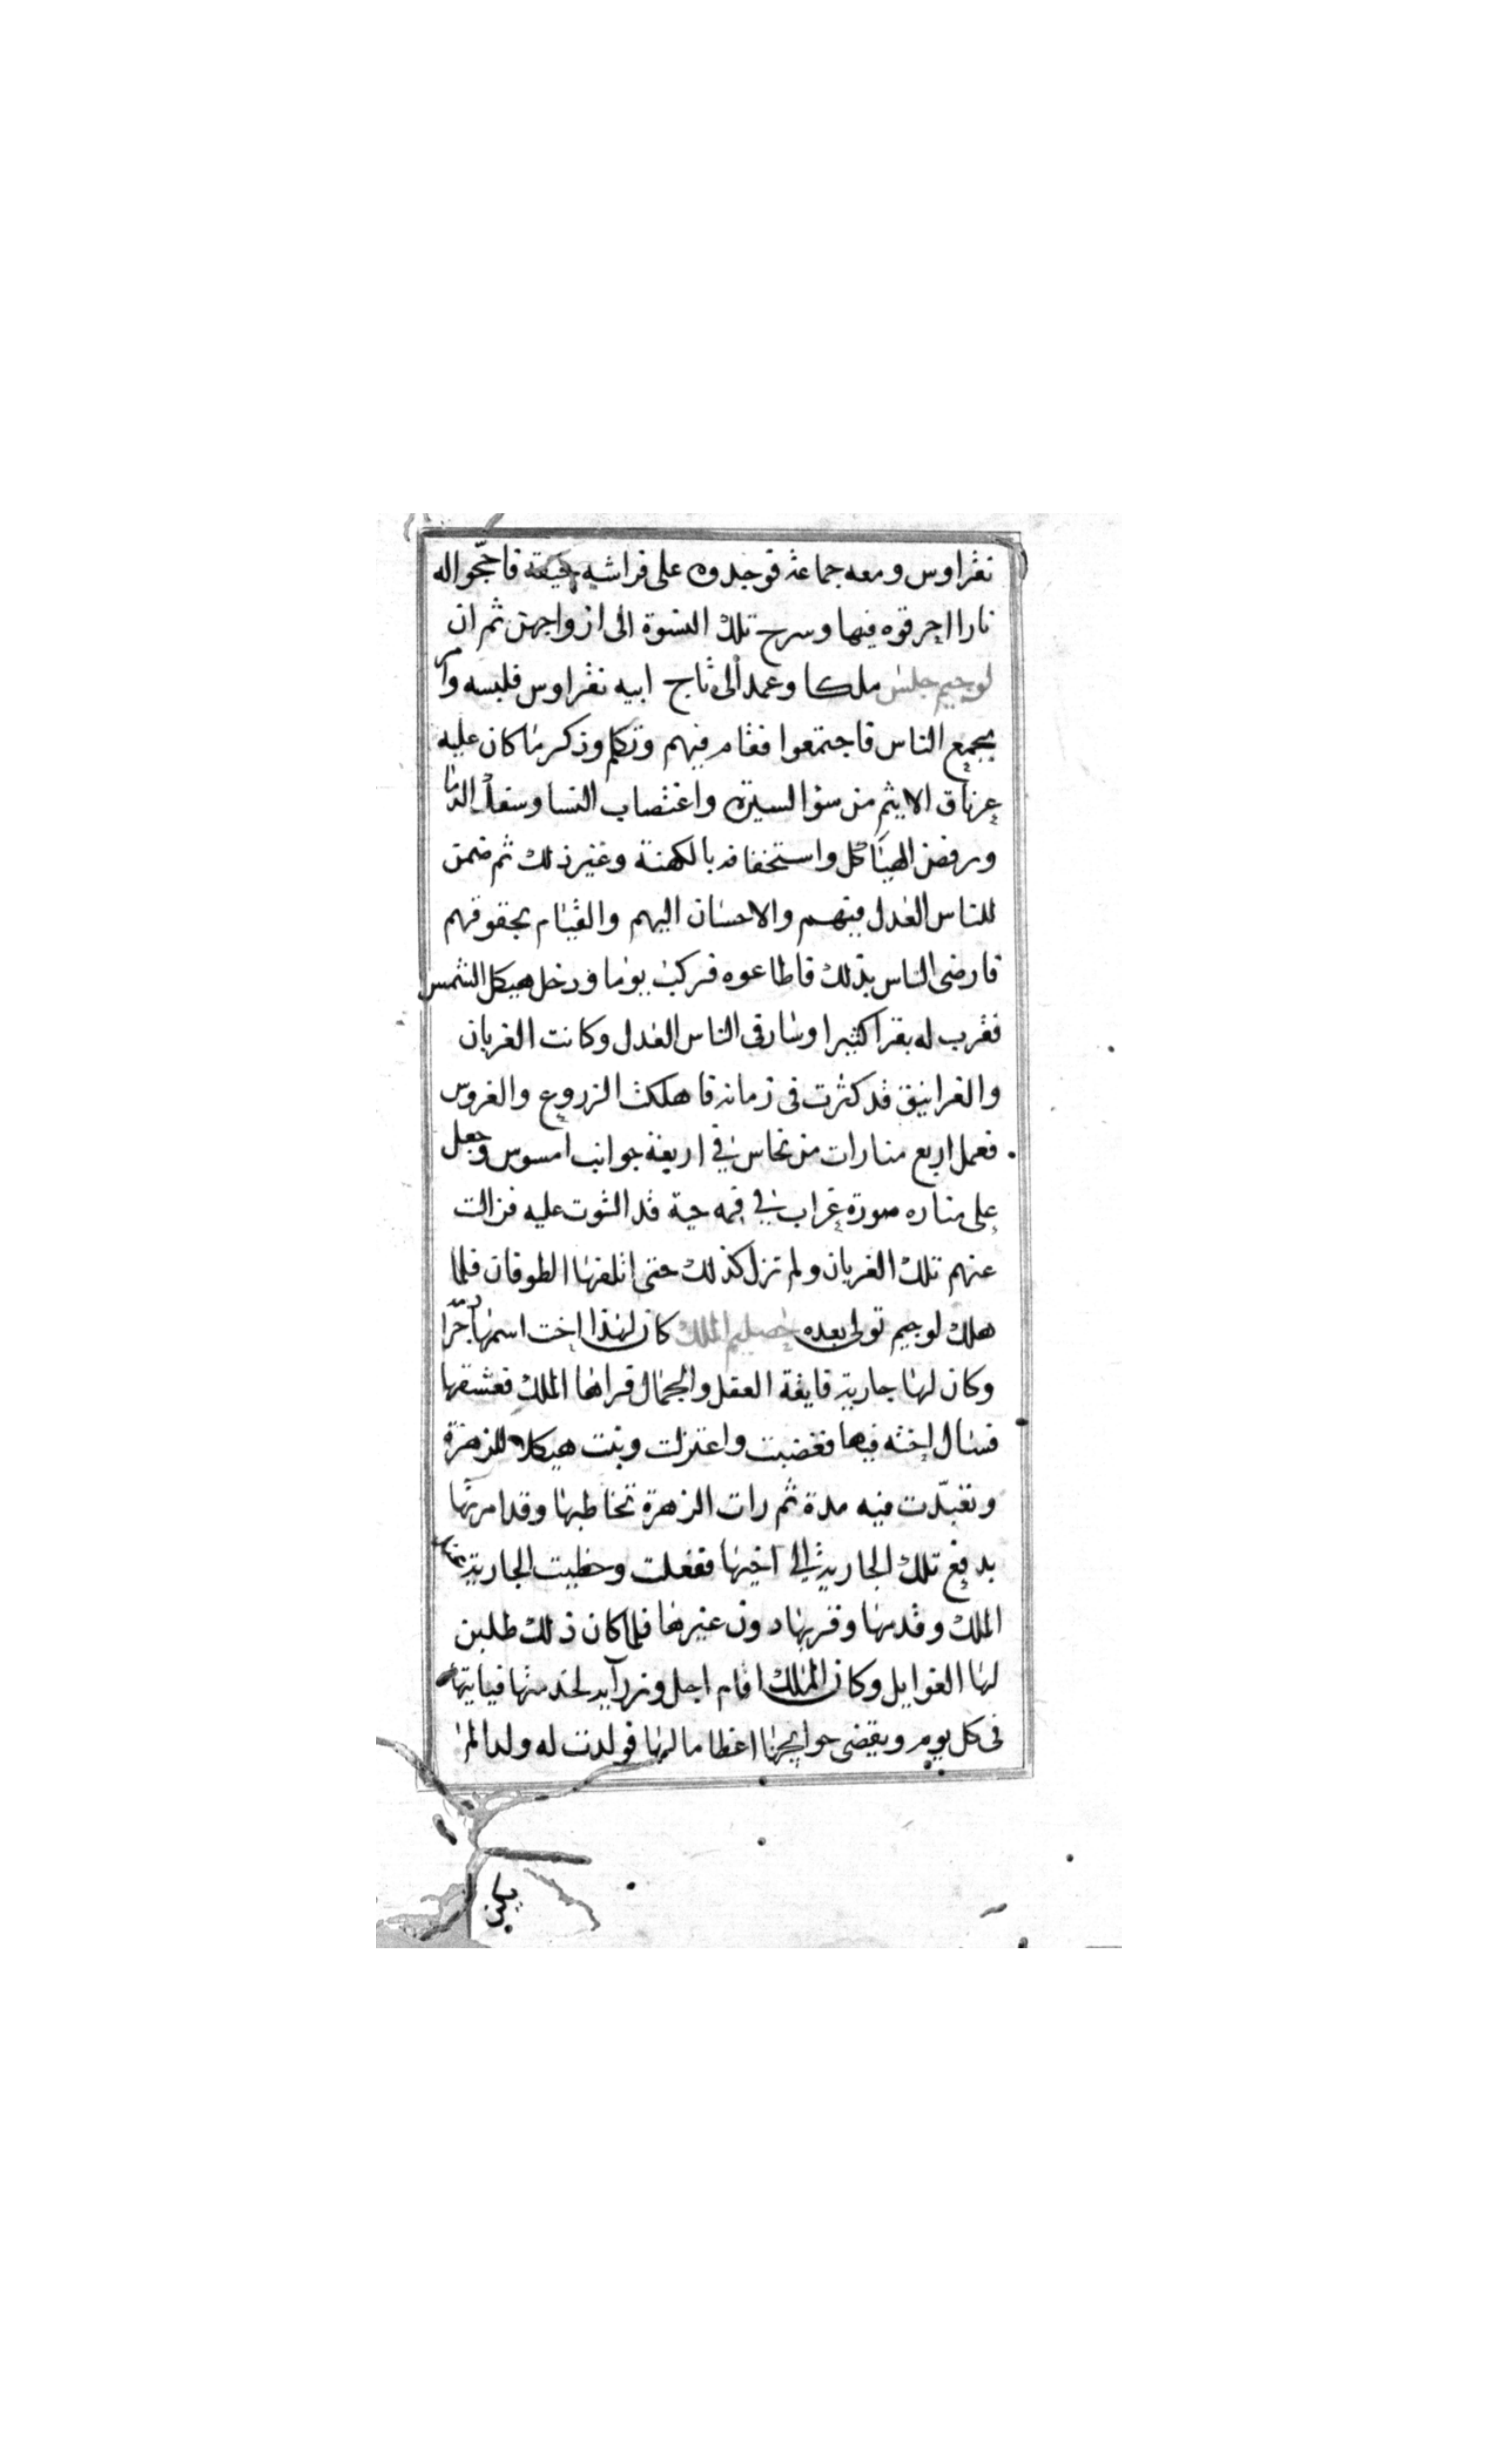 نقراوس ومعه جماعة فوجدوه على فراشه جيفة فاججوا له
نارا احرقوه فيها وسرح تلك النسوة الى ازواجهن ثم ان
لوجيم جلس ملكا وعمد الى تاج ابيه نقراوس فلبسه وامر
بجمع الناس فاجتمعوا فقام فيهم وتكلم وذكر ما كان عليه
عرناق الايثم من سؤ السيرة واغتصاب النسا وسفك الدما
ورفض الهياكل واستخفافه بالكهنة وغير ذلك ثم ضمن
للناس العدل فيهم والاحسان اليهم والقيام بحقوقهم
فارضى الناس بذلك فاطاعوه فركب يوما ودخل هيكل الشمس
فقرب له بقرا كثيرا وسار في الناس العدل وكانت الغربان
والغرانيق قد كثرت في زمانه فاهلكت الزروع والغروس
فعمل اربع منارات من نحاس في اربعة جوانب امسوس وجعل
على مناره صورة غراب في فمه حية قد التوت عليه فزالت
عنهم تلك الغربان ولم تزل كذلك حتى اتلفها الطوفان فلما
هلك لوجيم تولى بعده خصليم الملك كان لهذا اخت اسمها
وكان لها جارية فايقة العقل والجمال فراها الملك فعشقها
فسال اخته فيها فغضبت واعتزلت وبنت هيكلا للزهرة
وتعبدت فيه مدة ثم رات الزهرة تخاطبها وقد امرتها
بدفع تلك الجارية الى اخيها ففعلت وحظيت الجارية عند
الملك وقدمها وقربها دون غيرها فلما كان ذلك طلبن
لها الغوايل وكان الملك اقام اجل وزرآيه لخدمتها فياتيها
في كل يوم ويقضي حوايجها اعظاما لها فولدت له ولدا لم